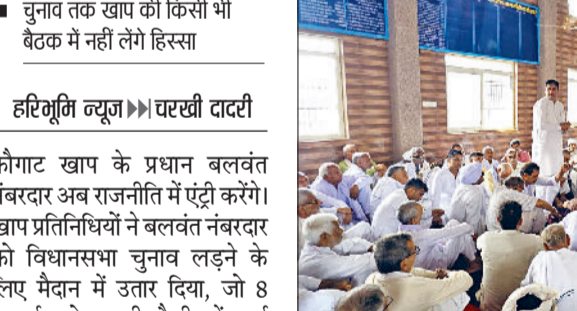 चुनाव तक खाप की किसी भी
बैठक में नहीं लेंगे हिस्सा
हरिभूमि न्यूज चरखी दादरी
कौगाट खाप के प्रधान बलवंत
नंबरदार अब राजनीति में एंट्री करेंगे।
खाप प्रतिनिधियों ने बलवंत नंबरदार
को विधानसभा चुनाव लड़ने के
लिए मैदान में उतार दिया, जो 8